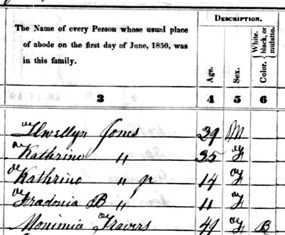 DESCRIPTION.
The Name of every Person whose usual place of abode on the first day of June, 1850, was in this family.
Age.
Sex.
White, black, or mulatto.
Color.
3 4 5 6
Llwellyn Jones 39 M
Kathrine " 35 F
Kathrine " Jr 14 F
Fradonia B " 11 F
Monimia Travers 49 F B